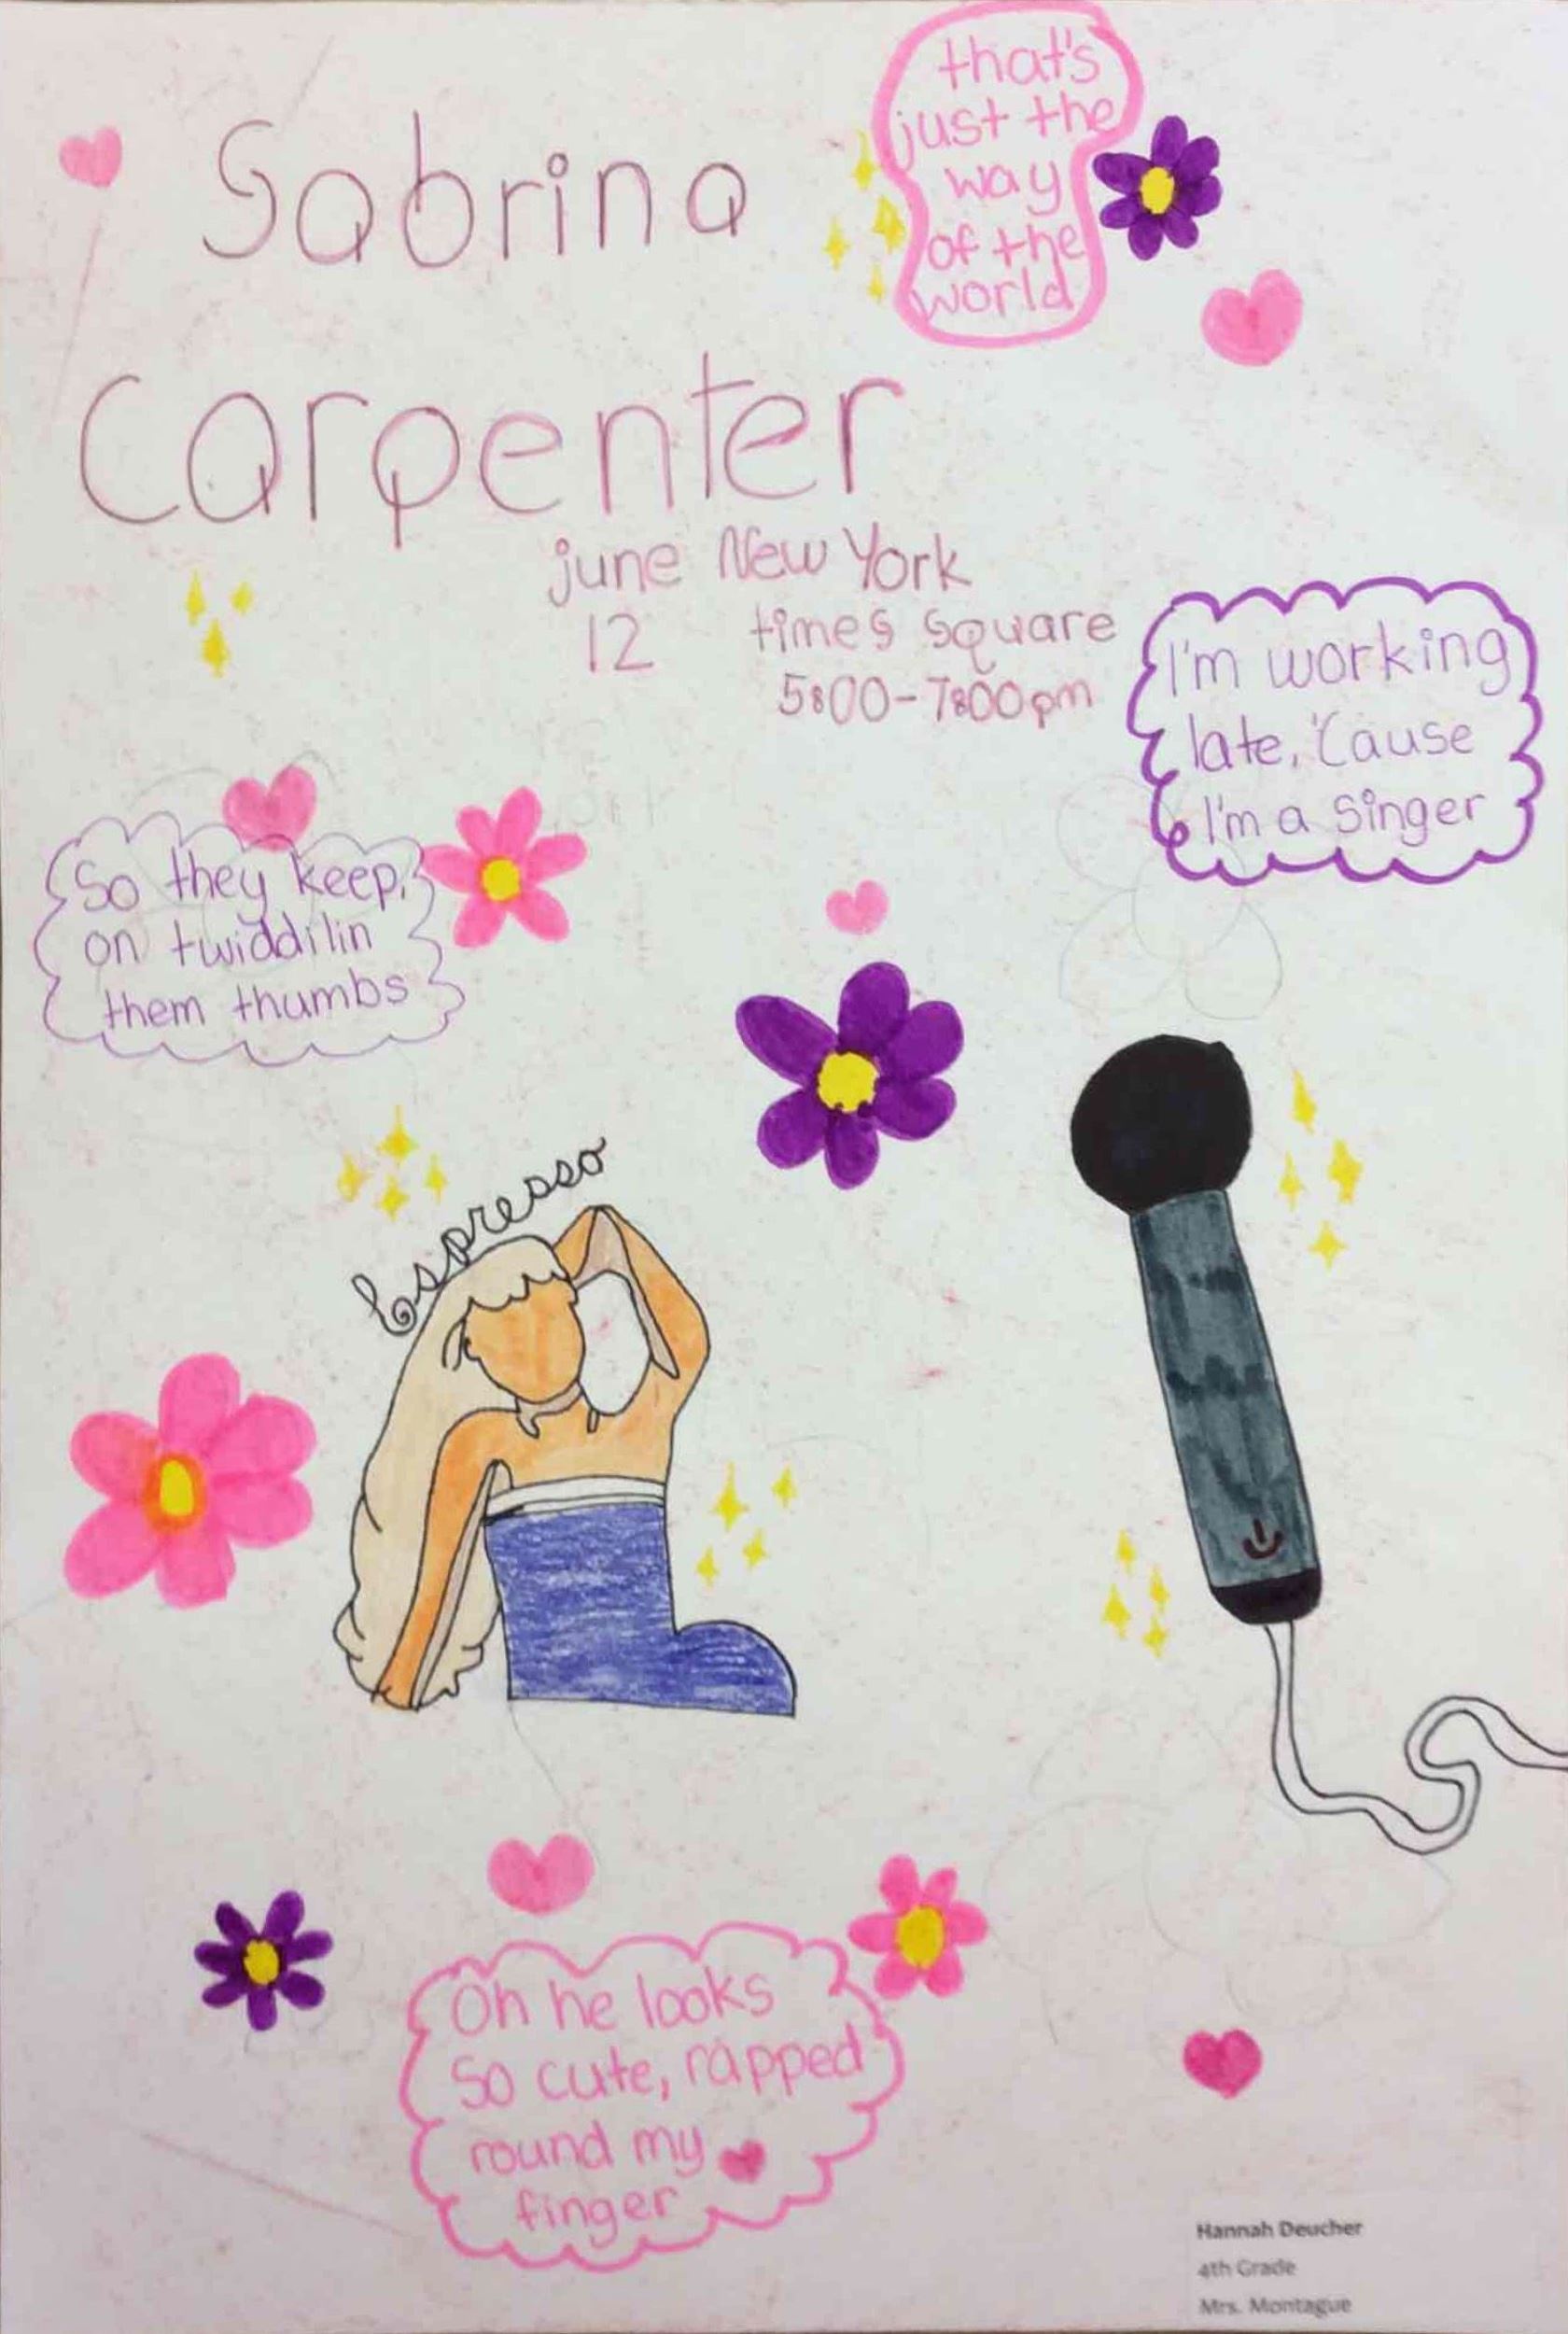 that's
just the
way
of the
world
Sabrina
Carpenter
june New York
12 times square
5:00-7:00pm
I'm working
late, 'Cause
I'm a Singer
So they keep,
on twiddilin
them thumbs
Espresso
Oh he looks
So cute, rapped
round my
finger
Hannah Deucher
4th Grade
Mrs. Montague